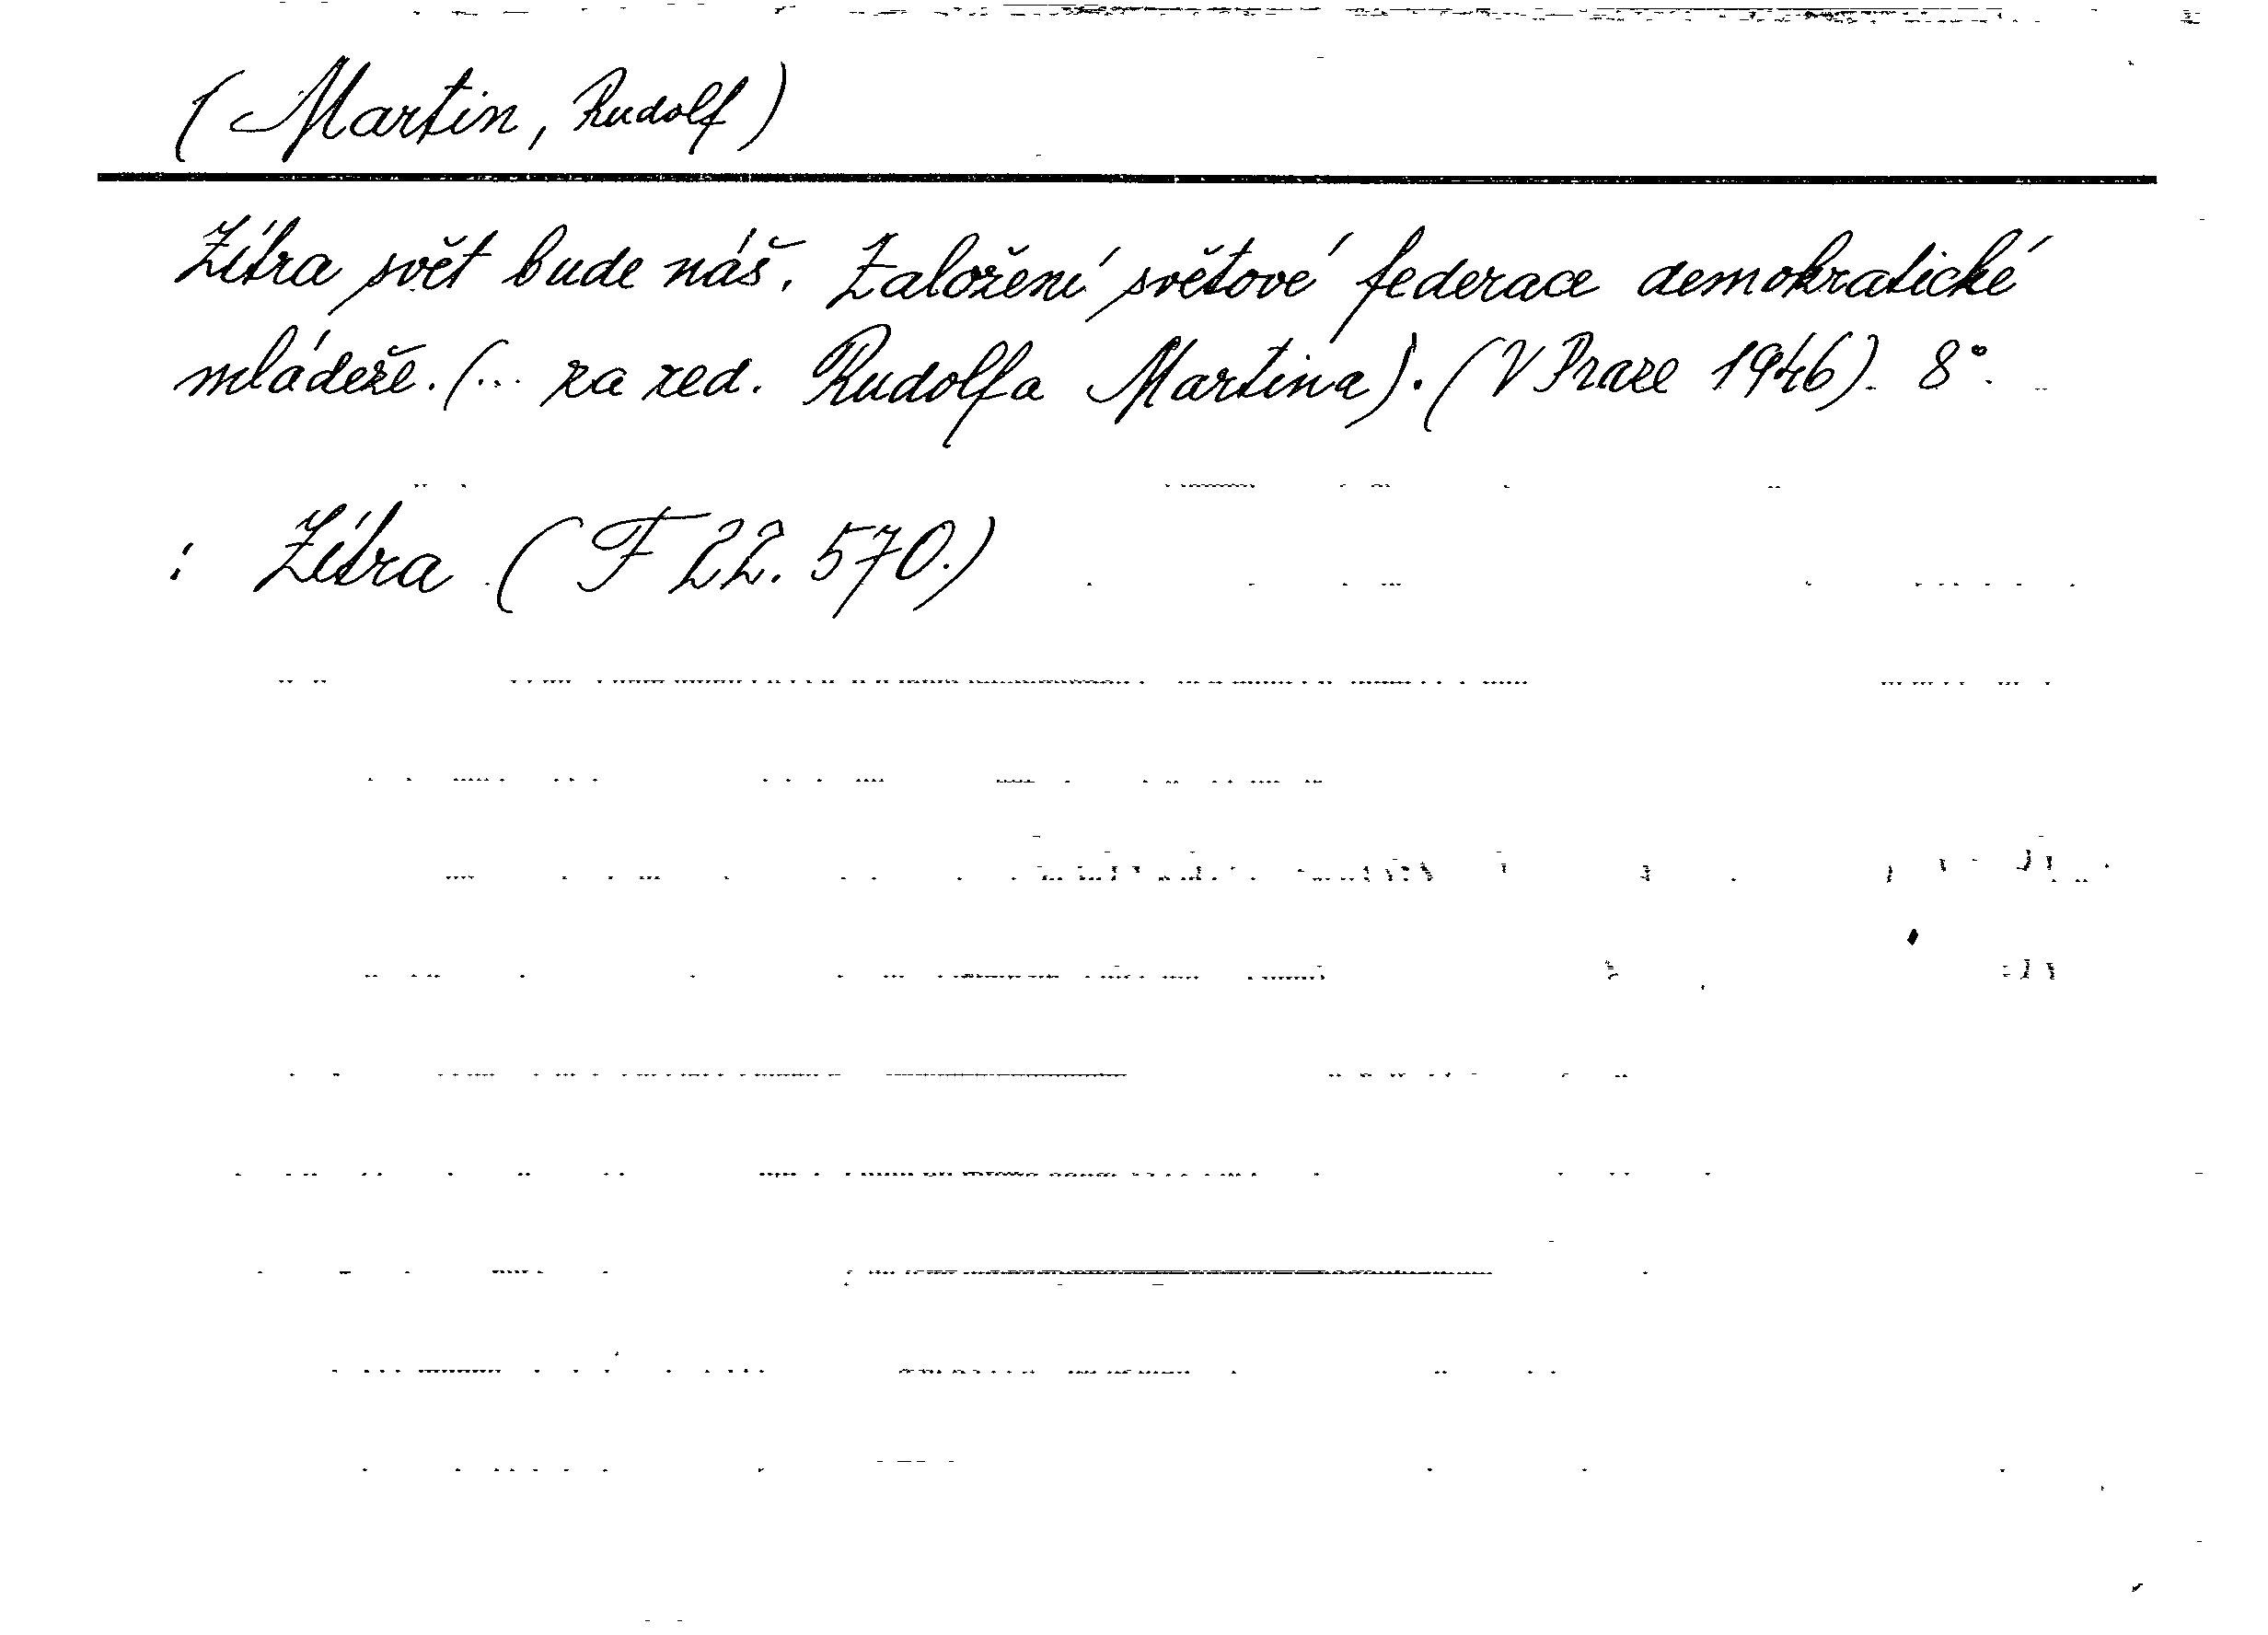 (Martin, Rudolf)
Zítra svět bude náš. Založení světové federace demokratické
mládeže. (... za red. Rudolfa Martina). (V Praze 1946). 8°.
: Zítra (F 22.570.)